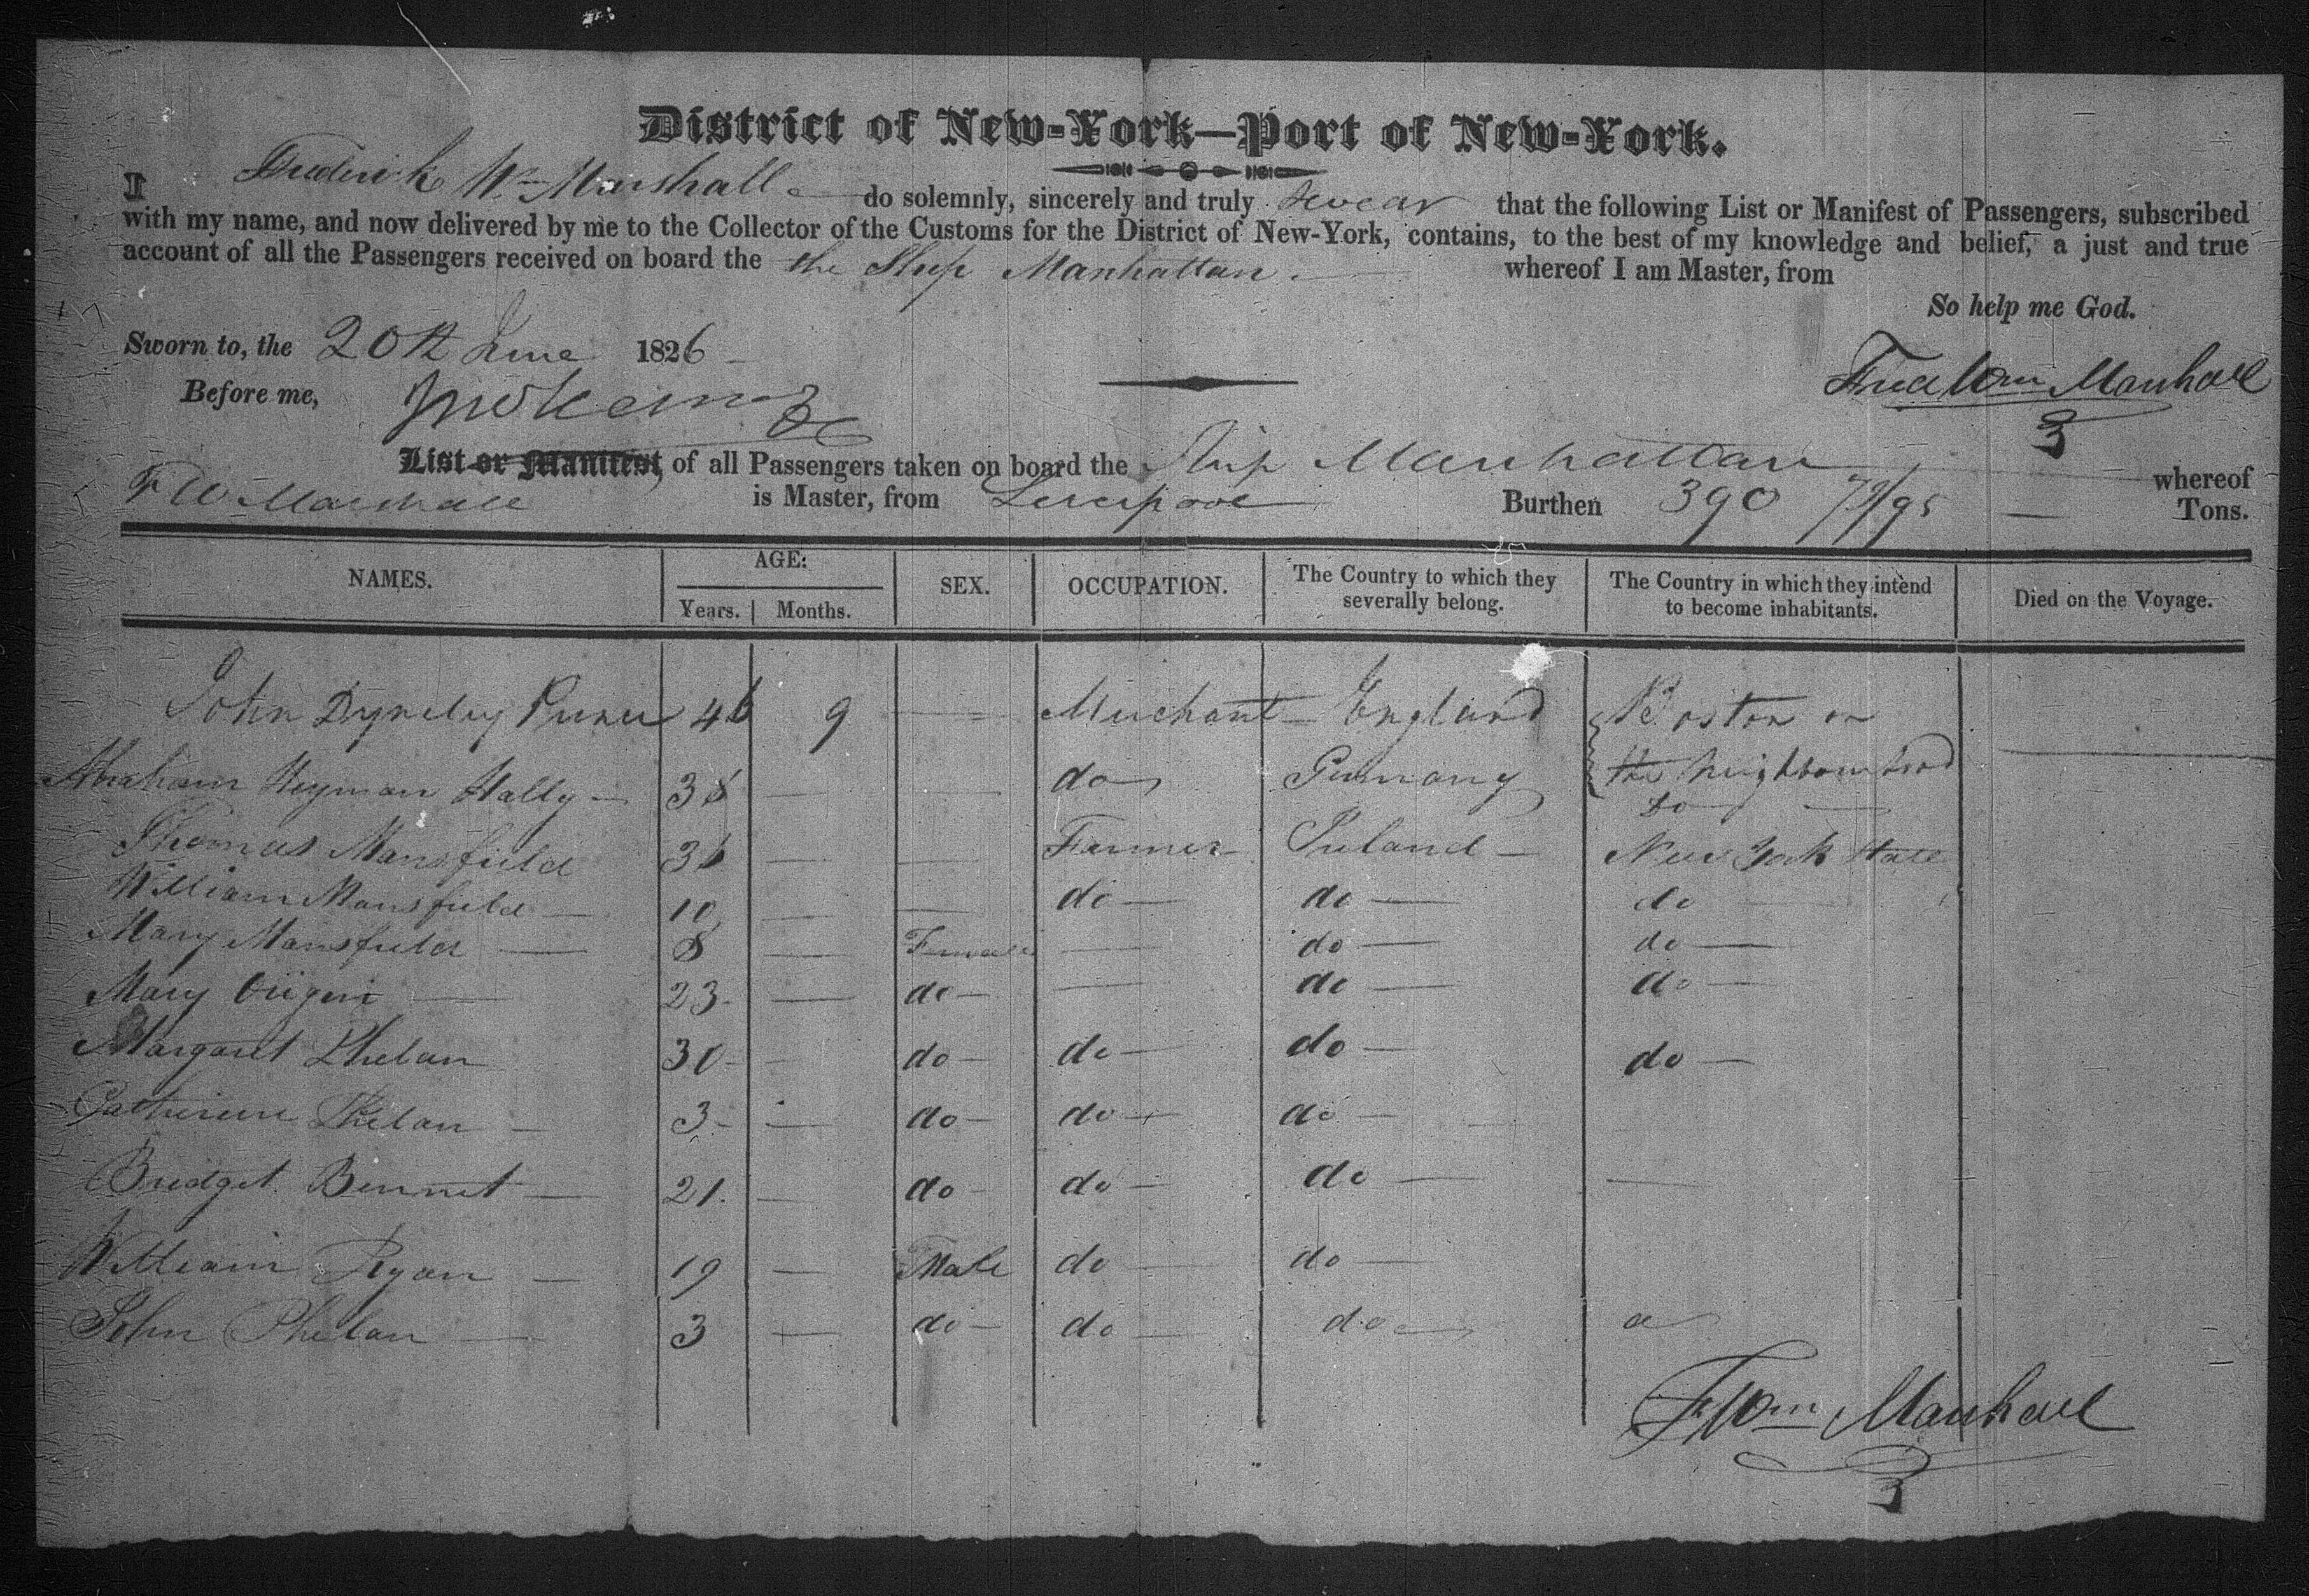 District of New-York—Port of New-York.
I Frederick Wm Marshall do solemnly, sincerely and truly swear that the following List or Manifest of Passengers, subscribed
with my name, and now delivered by me to the Collector of the Customs for the District of New-York, contains, to the best of my knowledge and belief, a just and true
account of all the Passengers received on board the the Ship Manhattan. whereof I am Master, from
So help me God.
Sworn to, the 20th June 1826
Before me,
Fred Wm Marshall
List or Manifest, of all Passengers taken on board the Ship Manhattan whereof
F W Marshall is Master, from Liverpool Burthen 390 79/95 Tons.
NAMES. AGE: Years. Months. SEX. OCCUPATION. The Country to which they severally belong. The Country in which they intend to become inhabitants. Died on the Voyage.
John Dyneley 46 9 — Merchant England Boston or
the neighbourhood
Abraham Heyman Hally — 38 — — do Germany do —
Thomas Mansfield 36 — — Farmer Ireland — New York State
William Mansfield — 10 — — do — do — do
Mary Mansfield — 8 — Female — do — do —
Mary — 23 — do — — do — do —
Margaret Phelan 30 — do — do — do — do —
Catherine Phelan — 3 — do — do — do —
Bridget Bennet — 21 — do — do — do — —
William Ryan — 19 — Male do — do —
John Phelan — 3 — do — do — do —
F Wm Marshall